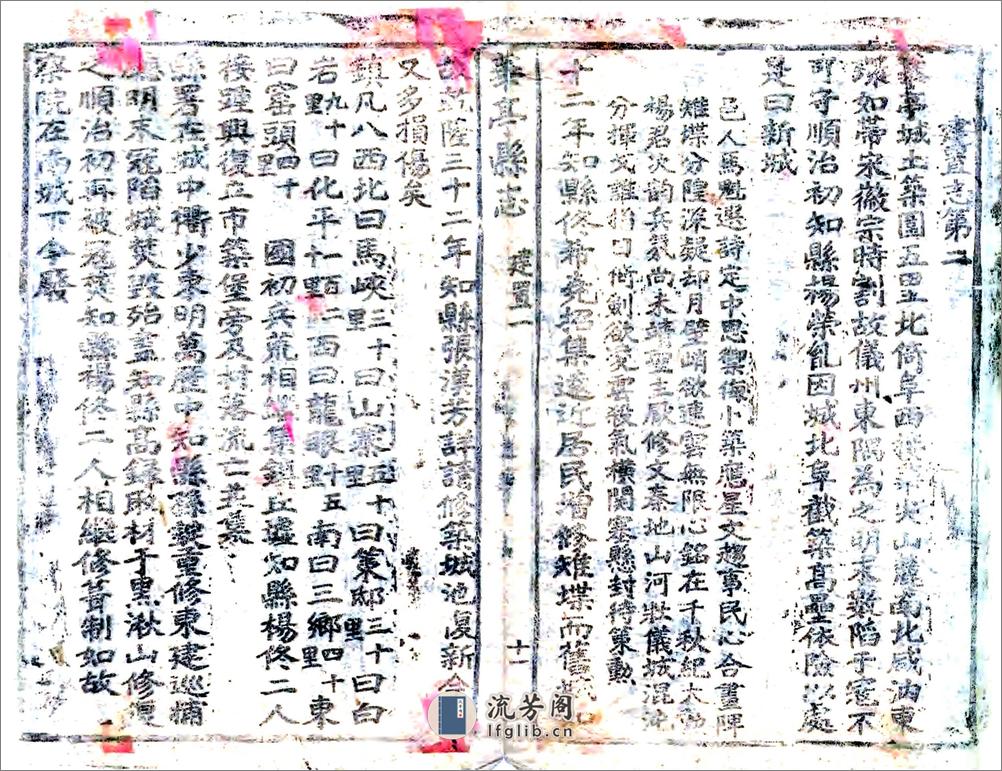 建置志第二
亭城土築圍五里北倚阜西接火山麓南北咸汭東
環如帶宋徽宗時割故儀州東隅為之明末數陷于寇不
可守順治初知縣楊榮胤因城北阜截築高壘依險以處
是曰新城
邑人馬魁選詩定中思禦侮卜築應星文趨事民心合畫暉
雉堞分隍深疑却月壁峭欲連雲無限心銘在千秋紀大勳
楊君次韵兵氛尚未靖聖主厭修文秦地山河壯儀城混沌
分揮戈誰指日衝劍欲凌雲殺氣橫關塞縣封待策勳
十二年知縣佟希堯招集遠近居民增修雉堞而舊城
華亭縣志
建置二
十一
故乾隆三十二年知縣張漢芳詳請修築城池復新今
又多損傷矣
鎮凡八西北曰馬峽三十里曰山寨五十里曰策邸三十里曰白
岩九十里曰化平一百二里西曰龍眼十五里南曰三鄉四十里東
曰窑頭四十里 國初兵荒相集鎮丘墟知縣楊佟二人
接踵興復立市築堡旁及村落流亡並集
縣署在城中衢少東明萬曆中知縣孫重修東建巡捕
明末寇陷城焚毀殆盡知縣高錄取材于黑湫山修復
之順治初再被寇焚知縣楊佟二人相繼修葺制如故
察院在南城下今廢
流芳阁
lfglib.cn